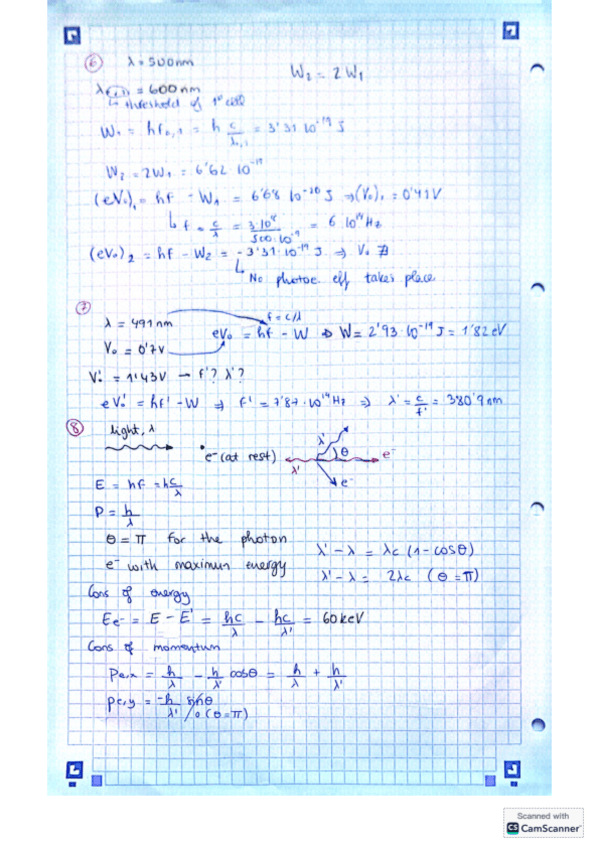 ⑥ λ = 500nm
W₂ = 2W₁
λ₀,₁ = 600nm
↳ threshold of 1st cell
W₁ = hf₀,₁ = h c/λ₀,₁ = 3'31 10⁻¹⁹ J
W₂ = 2W₁ = 6'62 10⁻¹⁹
(eV₀)₁ = hf - W₁ = 6'68 10⁻²⁰ J ⇒ (V₀)₁ = 0'41V
↳ f = c/λ = 3·10⁸/500·10⁻⁹ = 6 10¹⁴ Hz
(eV₀)₂ = hf - W₂ = -3'31·10⁻¹⁹ J ⇒ V₀ ∄
↳ No photoe. eff takes place
⑦
f = c/λ
λ = 491nm
eV₀ = hf - W ⇒ W = 2'93·10⁻¹⁹ J = 1'82 eV
V₀ = 0'7V
V₀' = 1'43V → f'? λ'?
eV₀' = hf' - W ⇒ f' = 7'87·10¹⁴ Hz ⇒ λ' = c/f' = 380'9nm
⑧ light, λ
e⁻ (at rest) λ' λ' θ e⁻ e⁻
E = hf = hc/λ
P = h/λ
θ = π for the photon
e⁻ with maximun energy
λ' - λ = λc (1 - cosθ)
λ' - λ = 2λc (θ = π)
Cons of energy
Ee⁻ = E - E' = hc/λ - hc/λ' = 60keV
Cons of momentum
Pe,x = h/λ - h/λ' cosθ = h/λ + h/λ'
pe,y = -h/λ' sinθ 0 (θ = π)
Scanned with
CS CamScanner